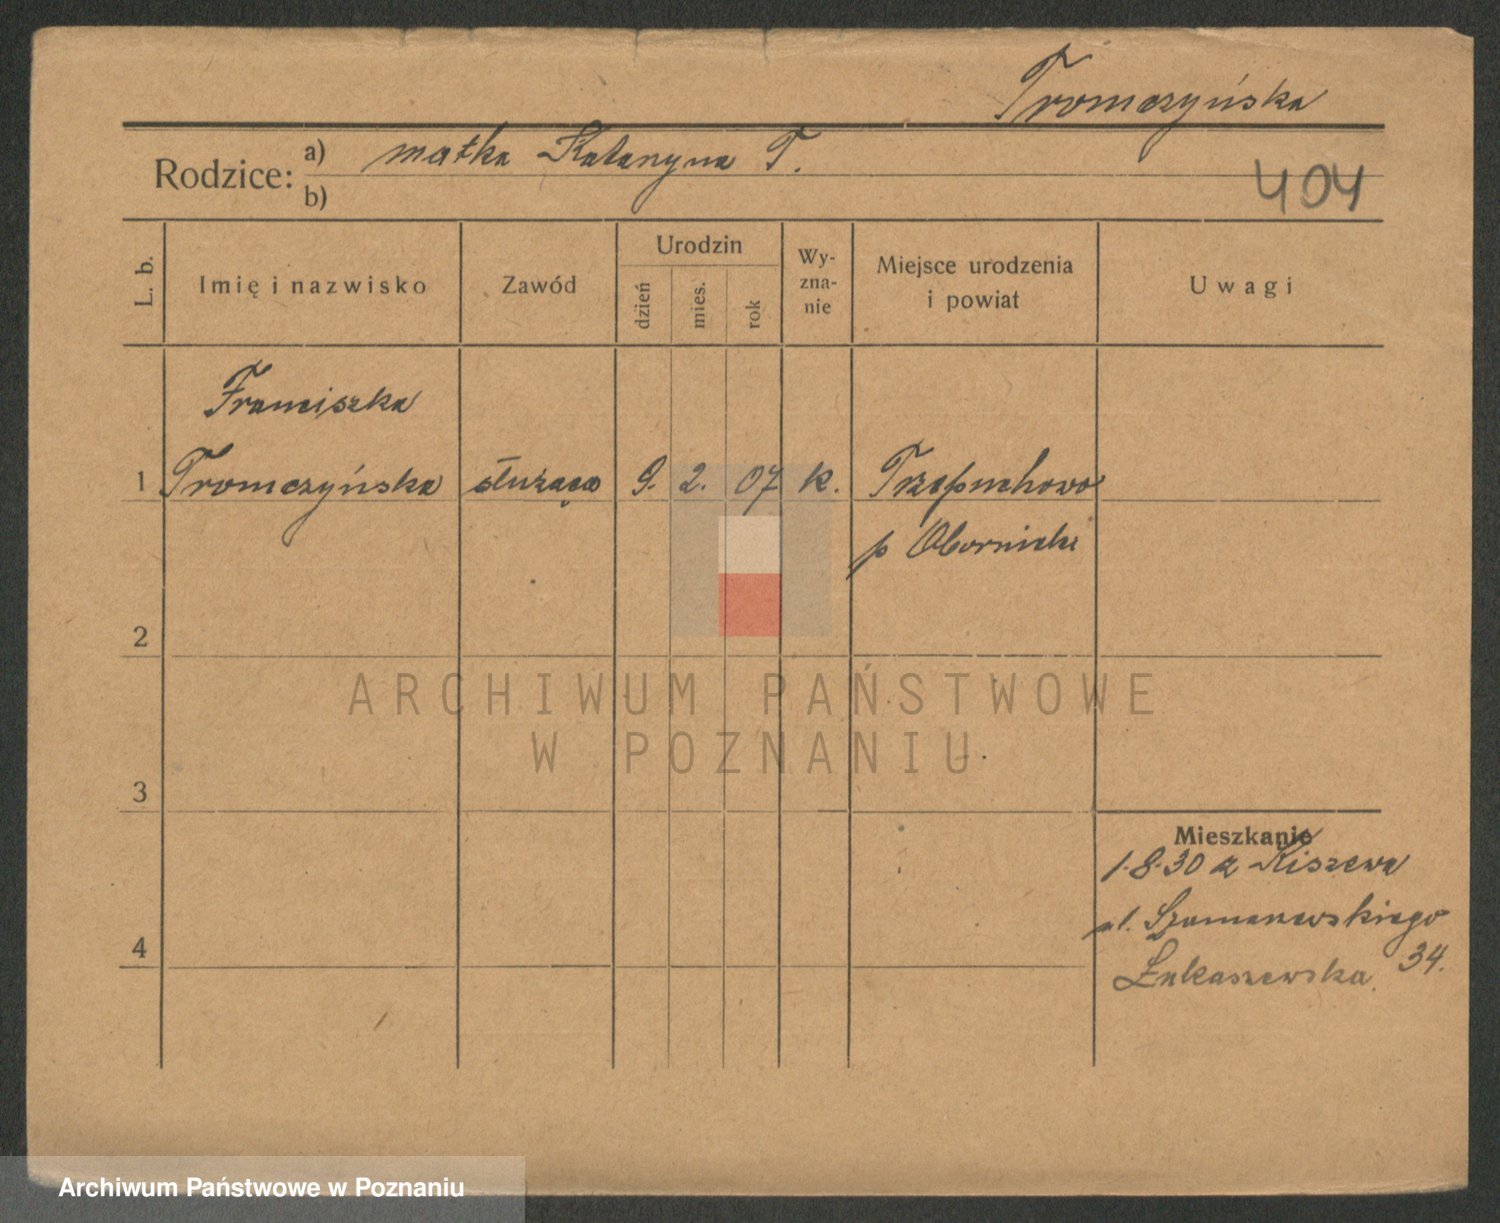 Tromczyńska
Rodzice: a) matka Kataryna T.
b)
404
L. b.
Imię i nazwisko
Zawód
Urodzin
dzień
mies.
rok
Wy-
zna-
nie
Miejsce urodzenia
i powiat
Uwagi
Franciszka
1 Tromczyńska służąca 9. 2. 07 k. Trzepuchowo
p Oborniki
2
ARCHIWUM PAŃSTWOWE
W POZNANIU
3
Mieszkanie
1.8.30 z Kiszewa
ul. Szamarzewskiego
34.
4
Łukaszewska.
Archiwum Państwowe w Poznaniu